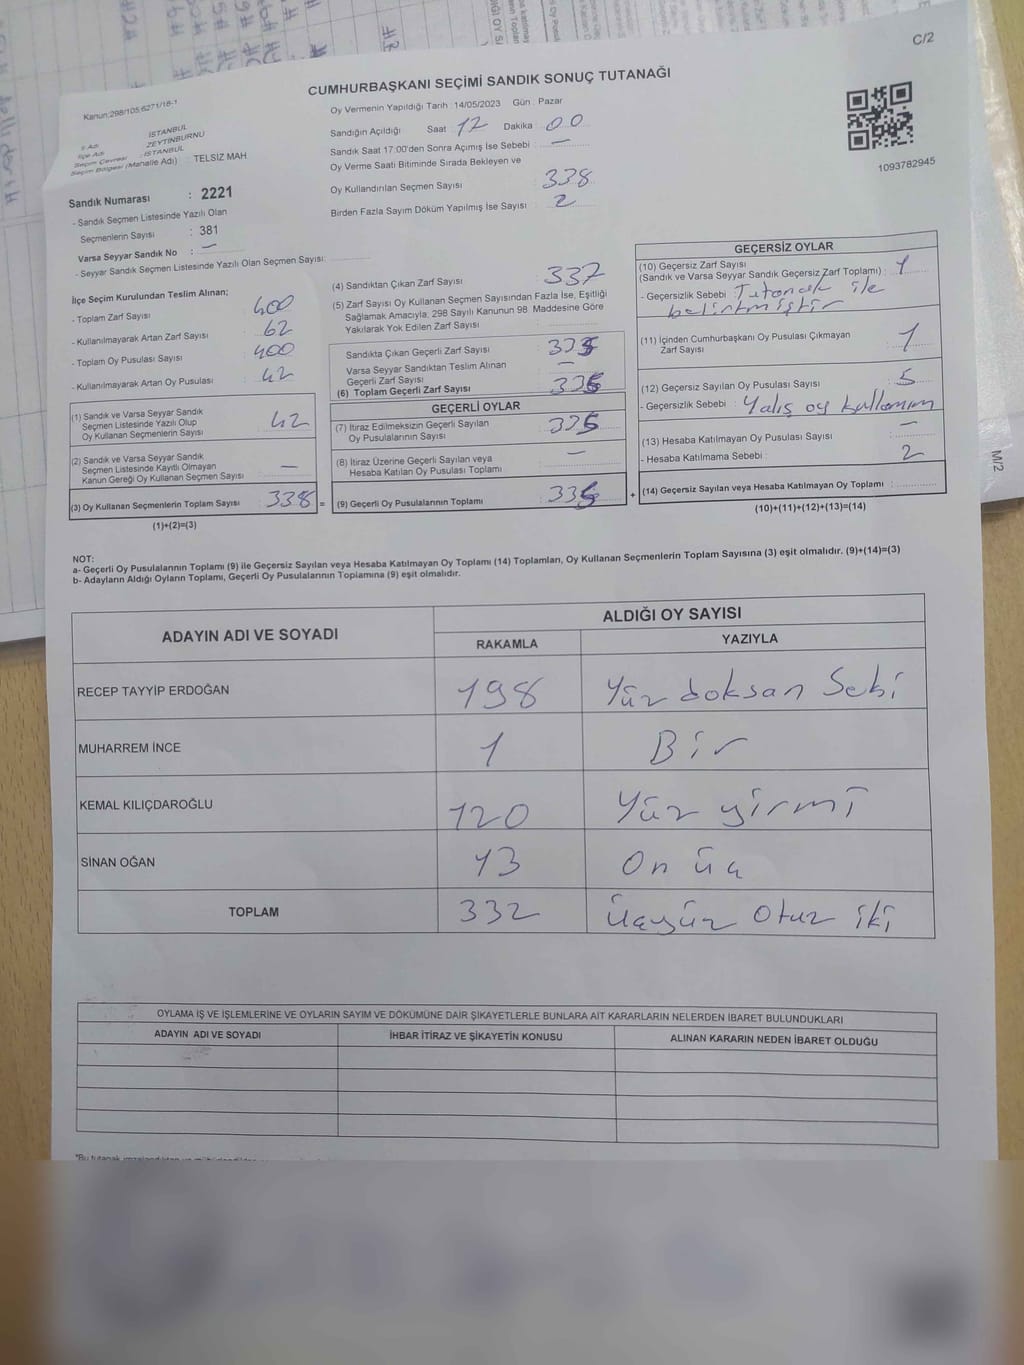 C/2
CUMHURBAŞKANI SEÇİMİ SANDIK SONUÇ TUTANAĞI
Kanun:298/105,6271/18-1
Oy Vermenin Yapıldığı Tarih : 14/05/2023 Gün : Pazar
İl Adı : İSTANBUL
İlçe Adı : ZEYTİNBURNU
Seçim Çevresi : İSTANBUL
Seçim Bölgesi (Mahalle Adı) : TELSİZ MAH
Sandığın Açıldığı Saat : 17 Dakika : 00
Sandık Saat 17:00'den Sonra Açımış İse Sebebi : —
Oy Verme Saati Bitiminde Sırada Bekleyen ve
Oy Kullandırılan Seçmen Sayısı : 338
Birden Fazla Sayım Döküm Yapılmış İse Sayısı : 2
1093782945
Sandık Numarası : 2221
- Sandık Seçmen Listesinde Yazılı Olan
Seçmenlerin Sayısı : 381
Varsa Seyyar Sandık No : —
- Seyyar Sandık Seçmen Listesinde Yazılı Olan Seçmen Sayısı:
İlçe Seçim Kurulundan Teslim Alınan;
- Toplam Zarf Sayısı : 400
- Kullanılmayarak Artan Zarf Sayısı : 62
- Toplam Oy Pusulası Sayısı : 400
- Kullanılmayarak Artan Oy Pusulası : 42
(1) Sandık ve Varsa Seyyar Sandık
Seçmen Listesinde Yazılı Olup
Oy Kullanan Seçmenlerin Sayısı : 42
(2) Sandık ve Varsa Seyyar Sandık
Seçmen Listesinde Kayıtlı Olmayan
Kanun Gereği Oy Kullanan Seçmen Sayısı : —
(3) Oy Kullanan Seçmenlerin Toplam Sayısı : 338 =
(1)+(2)=(3)
(4) Sandıktan Çıkan Zarf Sayısı : 337
(5) Zarf Sayısı Oy Kullanan Seçmen Sayısından Fazla İse, Eşitliği
Sağlamak Amacıyla, 298 Sayılı Kanunun 98. Maddesine Göre
Yakılarak Yok Edilen Zarf Sayısı :
Sandıkta Çıkan Geçerli Zarf Sayısı :
Varsa Seyyar Sandıktan Teslim Alınan
Geçerli Zarf Sayısı : —
(6) Toplam Geçerli Zarf Sayısı :
GEÇERLİ OYLAR
(7) İtiraz Edilmeksizin Geçerli Sayılan
Oy Pusulasının Sayısı :
(8) İtiraz Üzerine Geçerli Sayılan veya
Hesaba Katılan Oy Pusulası Toplamı : —
(9) Geçerli Oy Pusulalarının Toplamı : +
GEÇERSİZ OYLAR
(10) Geçersiz Zarf Sayısı
(Sandık ve Varsa Seyyar Sandık Geçersiz Zarf Toplamı) : 1
- Geçersizlik Sebebi : Tutanak ile
belirtmiştir
(11) İçinden Cumhurbaşkanı Oy Pusulası Çıkmayan
Zarf Sayısı : 1
(12) Geçersiz Sayılan Oy Pusulası Sayısı : 5
- Geçersizlik Sebebi : Yalış oy kullanım
(13) Hesaba Katılmayan Oy Pusulası Sayısı : —
- Hesaba Katılmama Sebebi : 2
(14) Geçersiz Sayılan veya Hesaba Katılmayan Oy Toplamı :
(10)+(11)+(12)+(13)=(14)
M/2
NOT:
a- Geçerli Oy Pusulalarının Toplamı (9) ile Geçersiz Sayılan veya Hesaba Katılmayan Oy Toplamı (14) Toplamları, Oy Kullanan Seçmenlerin Toplam Sayısına (3) eşit olmalıdır. (9)+(14)=(3)
b- Adayların Aldığı Oyların Toplamı, Geçerli Oy Pusulalarının Toplamına (9) eşit olmalıdır.
ADAYIN ADI VE SOYADI ALDIĞI OY SAYISI
RAKAMLA YAZIYLA
RECEP TAYYİP ERDOĞAN 198 Yüz doksan Sebi
MUHARREM İNCE 1 Bir
KEMAL KILIÇDAROĞLU 120 Yüz yirmi
SİNAN OĞAN 13 On üç
TOPLAM 332 Üçyüz Otuz iki
OYLAMA İŞ VE İŞLEMLERİNE VE OYLARIN SAYIM VE DÖKÜMÜNE DAİR ŞİKAYETLERLE BUNLARA AİT KARARLARIN NELERDEN İBARET BULUNDUKLARI
ADAYIN ADI VE SOYADI İHBAR İTİRAZ VE ŞİKAYETİN KONUSU ALINAN KARARIN NEDEN İBARET OLDUĞU